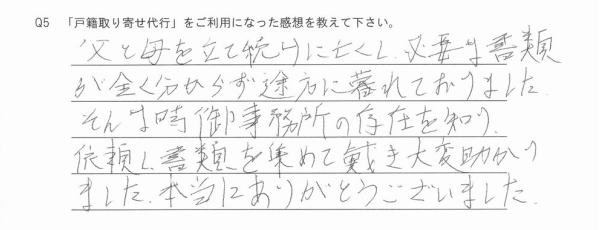 Q5 「戸籍取り寄せ代行」をご利用になった感想を教えて下さい。
父と母を立て続けに亡くし、必要な書類
が全く分からず途方に暮れておりました。
そんな時御事務所の存在を知り、
依頼し、書類を集めて戴き大変助かり
ました。本当にありがとうございました。